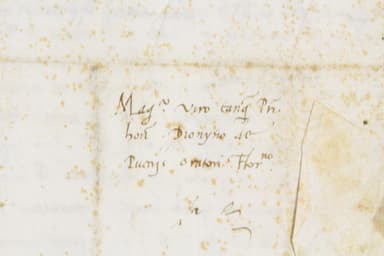 Mag.co Viro tanq. Pri.
hon. Dionysio de
Puccijs oratori Flor.no